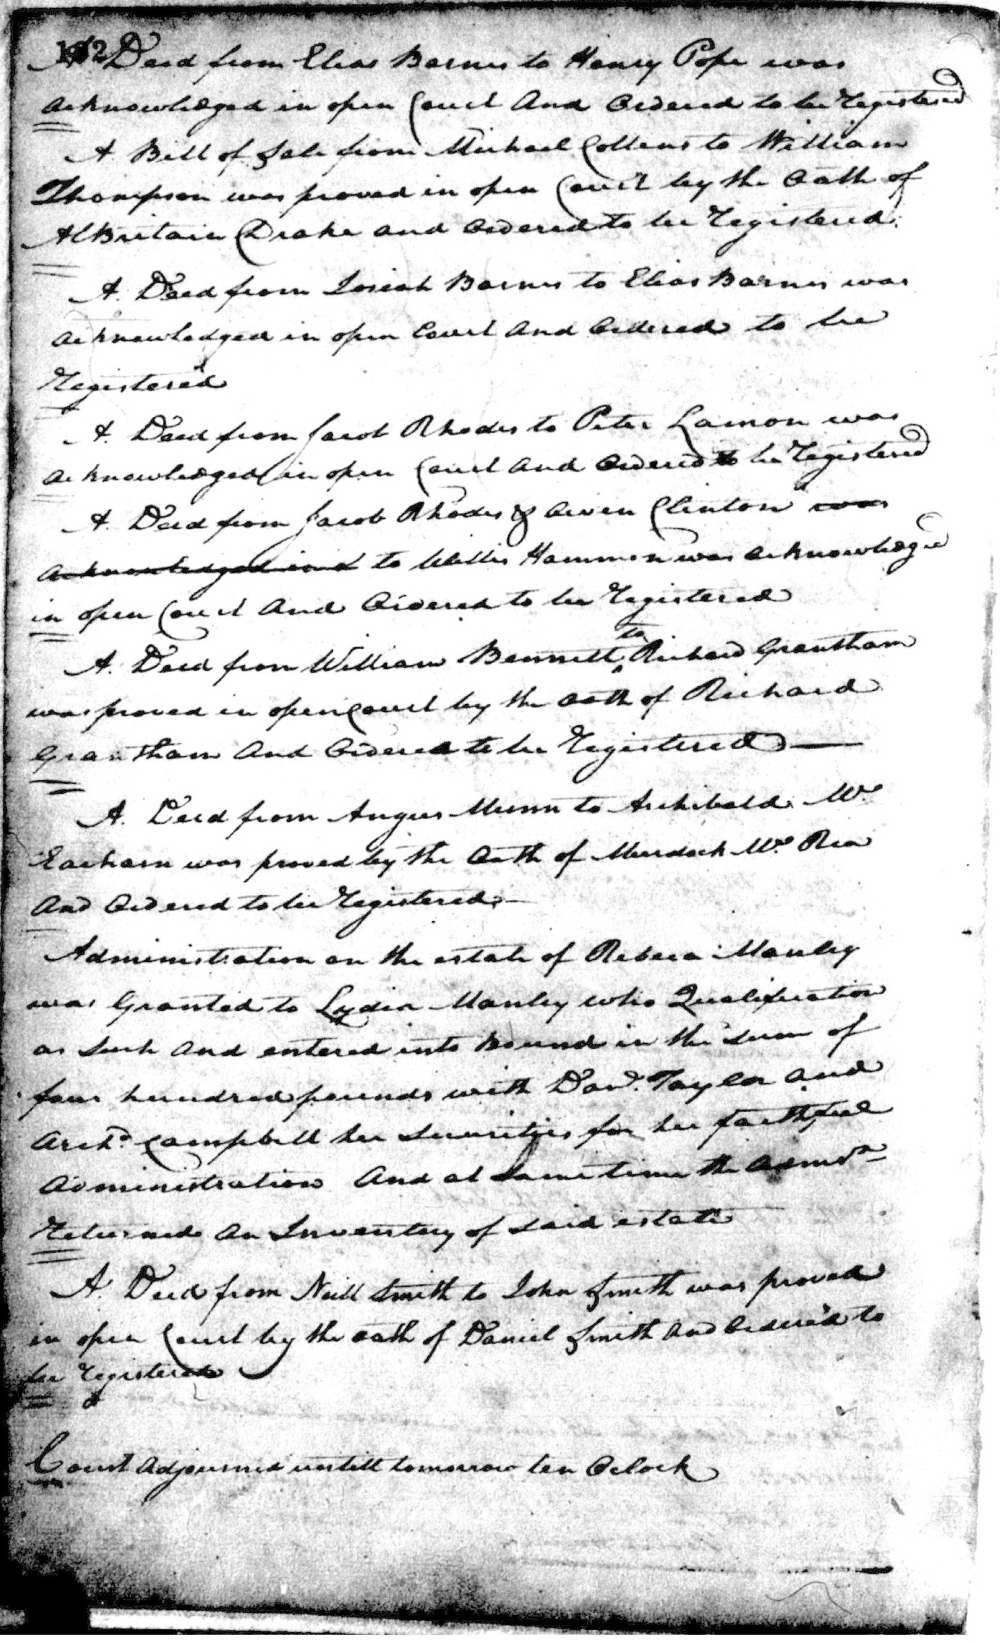 A Deed from Elias Barnes to Henry Pope was
acknowledged in open Court And Ordered to be Registered
A Bill of Sale from Michael Collens to William
Thompson was proved in open Court by the Oath of
AlBritain Drake and Ordered to be Registered.
A. Deed from Josiah Barnes to Elias Barnes was
acknowledged in open Court And Ordered to be
Registered
A. Deed from Jacob Rhodes to Peter Lamon was
acknowledged in open Court And Ordered to be Registered
A. Deed from Jacob Rhodes & Owen Clinton was
acknowledged in to Willis Hammon was acknowledged
in open Court And Ordered to be Registered
A. Deed from William Bennett to Richard Grantham
was proved in open Court by the oath of Richard
Grantham And Ordered to be Registered
A. Deed from Angus Munn to Archibald Mc
Eacharn was proved by the Oath of Murdock Mc Rea
And Ordered to be Registered
Administration on the estate of Rebeca Manley
was Granted to Lydia Manley who Qualification
as Such And entered into Bound in the Sum of
four hundred pounds with Dav.d Taylor and
Archd. Campbell her Securities for her faithful
Administration And at Same time the Admrx
Returned an Inventory of said estate
A. Deed from Neill Smith to John Smith was proved
in open Court by the oath of Daniel Smith And Ordered to
be Registered
Court Adjourned untill tomorrow ten Oclock